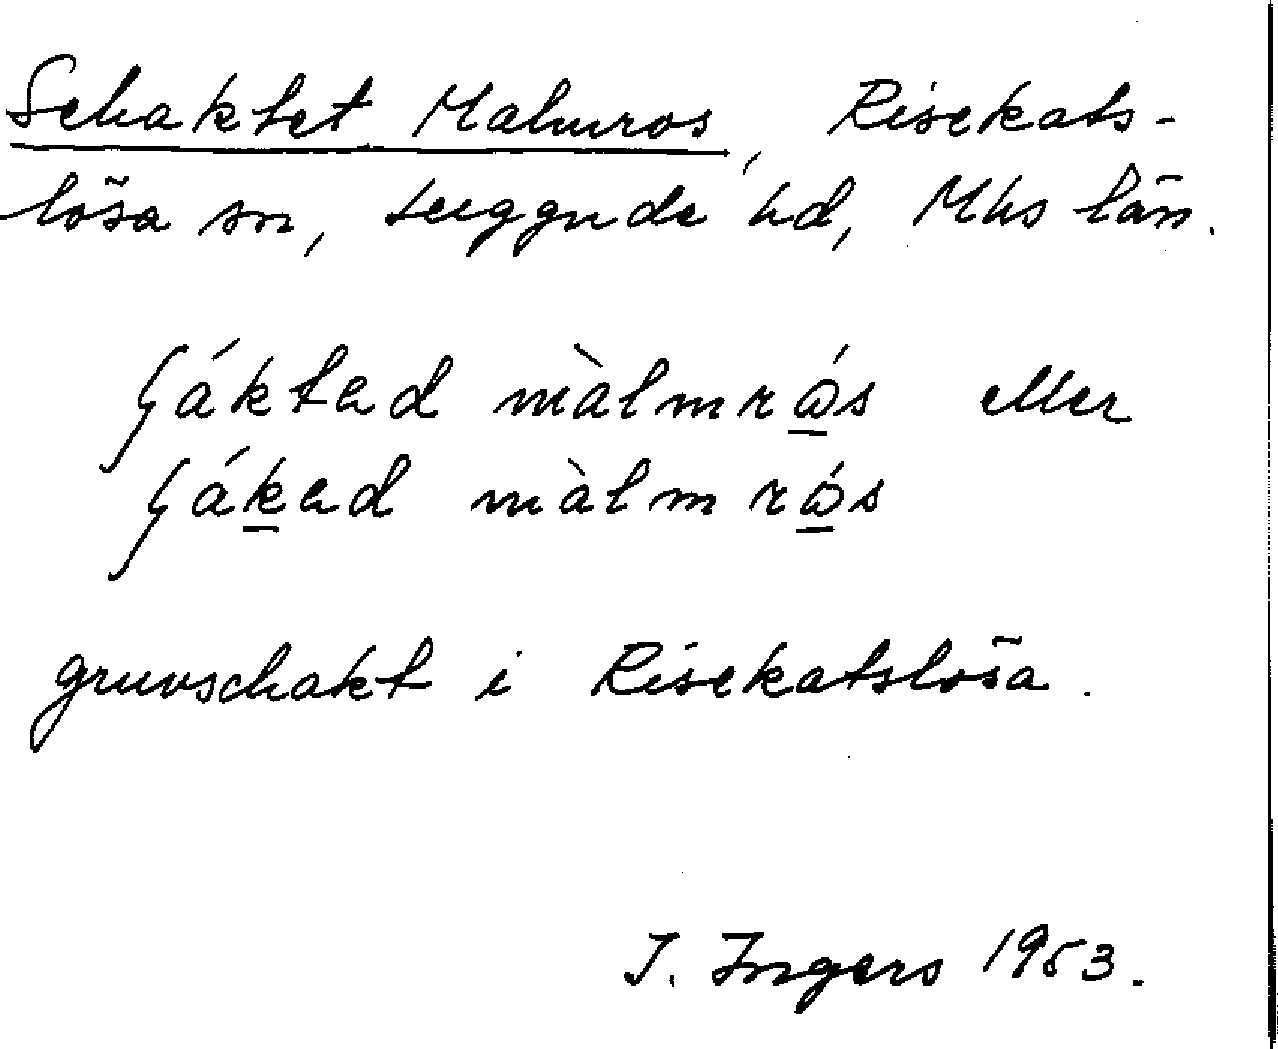 Schaktet Malmros, Risekats-
lösa sn, Luggude hd, Mhs län.
ʃáktad màlmrώ̲s eller
ʃák̲ad màlmrώ̲s
gruvschakt i Risekatslösa.
I. Ingers 1953.